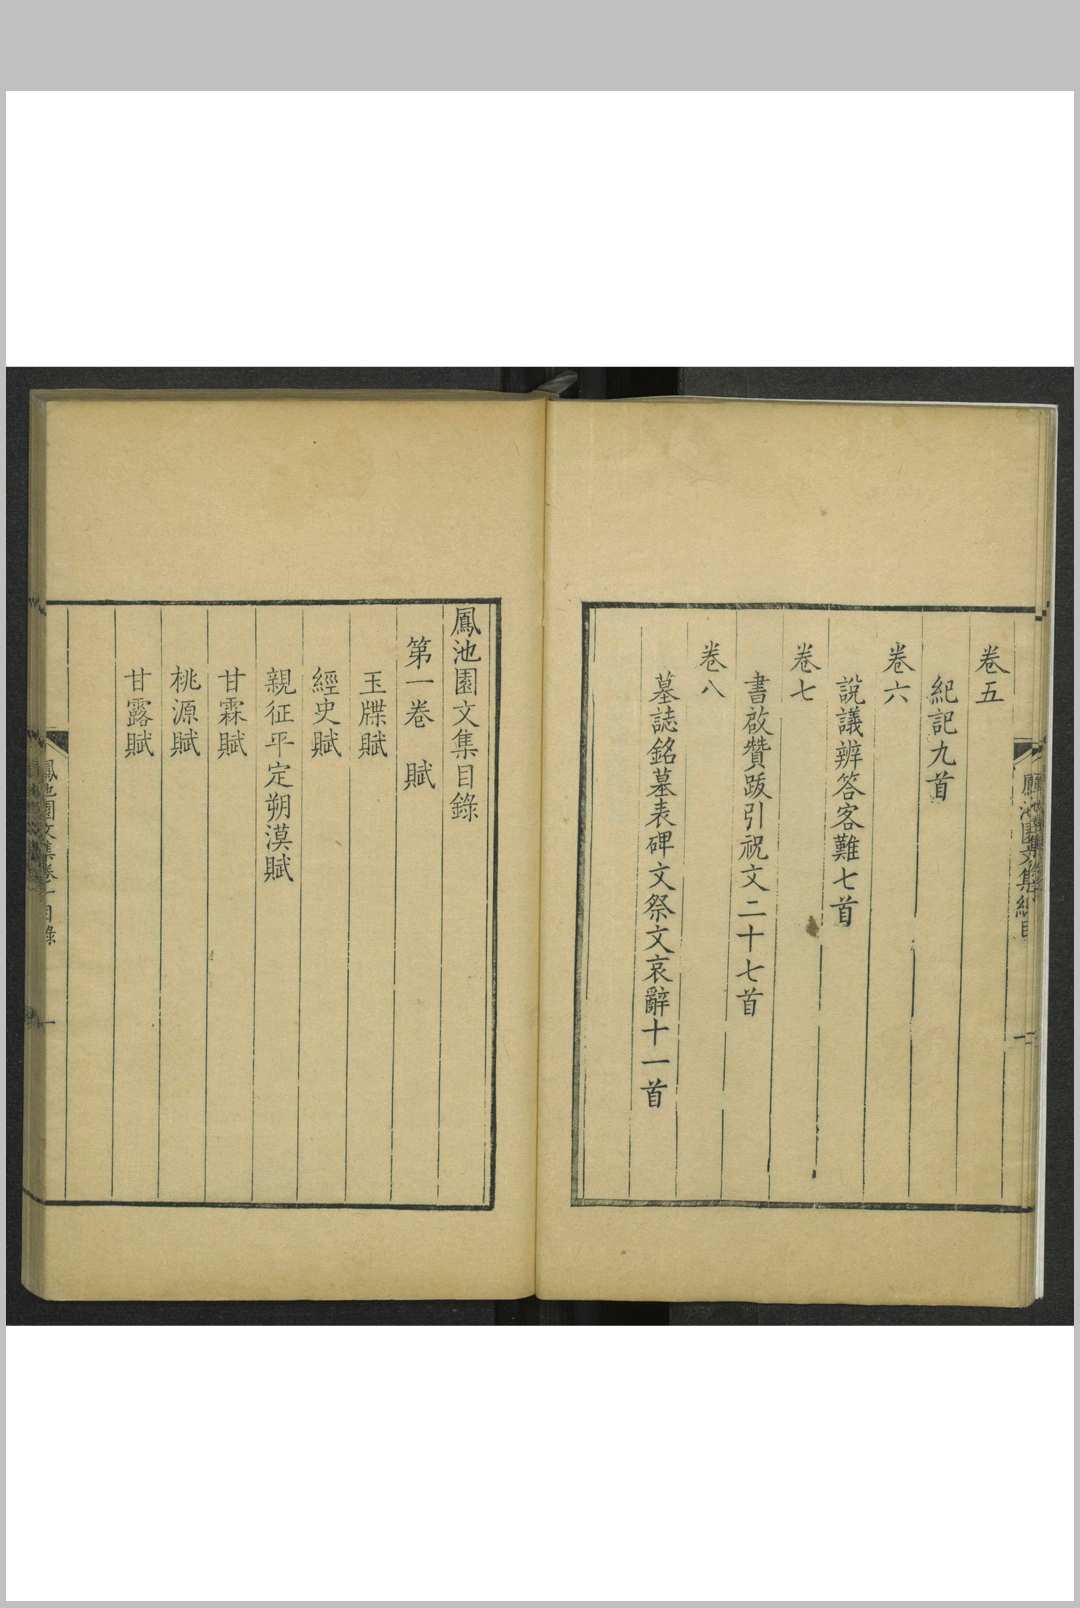 卷五
紀記九首
卷六
說議辨答客難七首
卷七
書啟贊跋引祝文二十七首
卷八
墓誌銘墓表碑文祭文哀辭十一首
鳳池園文集目錄
第一卷 賦
玉牒賦
經史賦
親征平定朔漠賦
甘霖賦
桃源賦
甘露賦
鳳池園文集卷一目錄
一